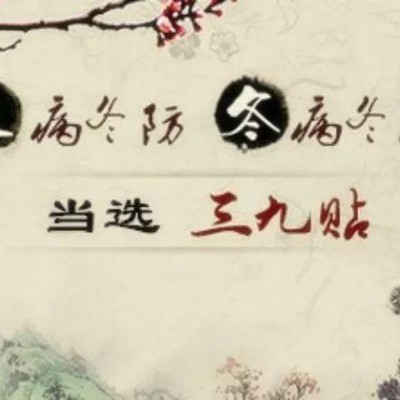 病冬防 冬病冬
当选 三九贴